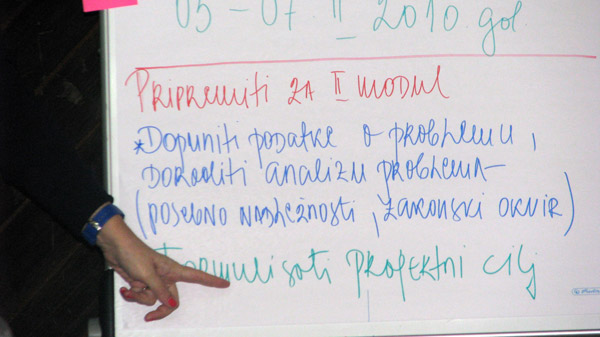 05 - 07 II 2010 god.
PRIPREMITI ZA II MODUL
*DOPUNITI PODATKE O PROBLEMU,
DORADITI ANALIZU PROBLEMA-
(POSEBNO NADLEŽNOSTI, ZAKONSKI OKVIR)
FORMULISATI PROJEKTNI CILJ